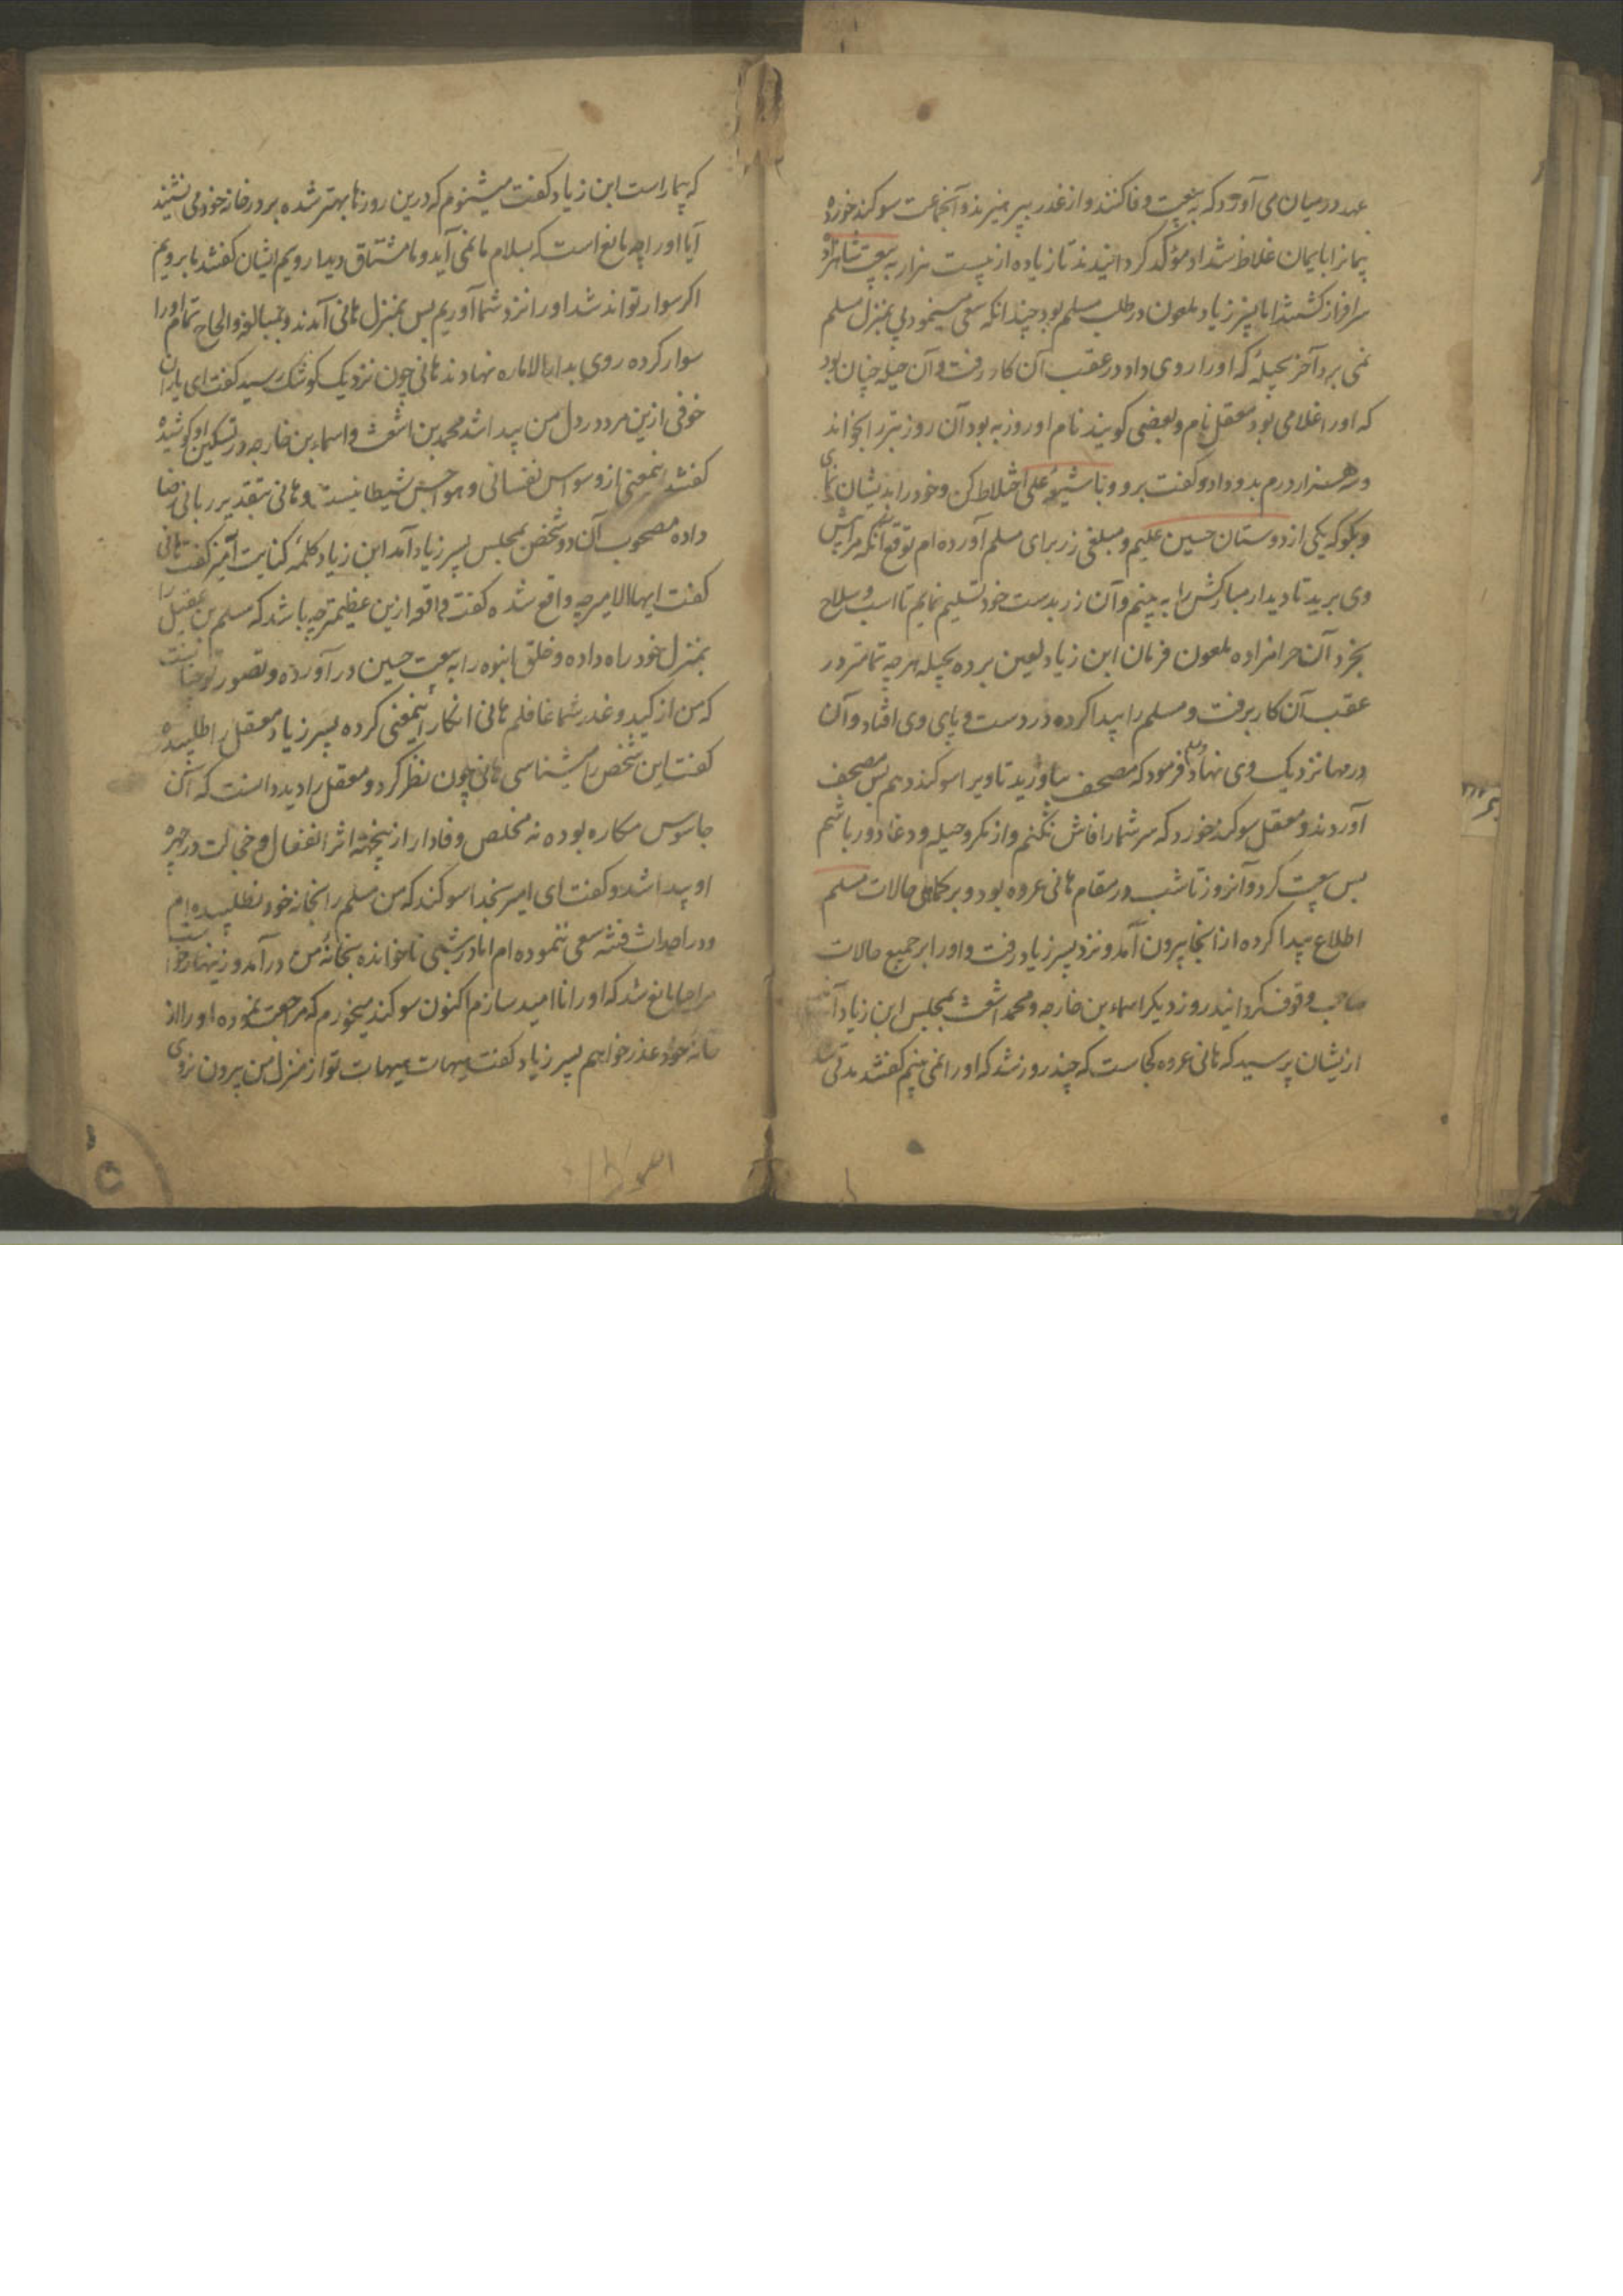 عهد در میان می آورد که به بیعت وفا کنند و از غدر بپرهیزند و آنجماعت سوکند خورده
پیمانرا بایمان غلاظ شداد مؤکد کردانیدند تا زیاده از بیست هزار به بیعت شاهزاده
سرافراز کشتند اما پسر زیاد ملعون در طلب مسلم بود چندانکه سعی مینمود پی بمنزل مسلم
نمی برد آخر بحیلهٔ که او را روی داد در عقب آن کار رفت و آن حیله چنان بود
که او را غلامی بود معقل نام و بعضی کویند نام او روزبه بود آن روز بتر را بخواند
و سه هزار درم بدو داد و کفت برو و با شیعهٔ علی اختلاط کن و خود را بدیشان نمای
و بکو که یکی از دوستان حسین علیم و مبلغی زر برای مسلم آورده ام توقع آنکه مرا پیش
وی برید تا دیدار مبارکش را به بینم و آن زر بدست خود تسلیم نمایم تا اسب و سلاح
بخرد آن حرامزاده ملعون فرمان ابن زیاد لعین برده بحیله هر چه تمامتر در
عقب آن کار برفت و مسلم را پیدا کرده در دست و پای وی افتاد و آن
درمها نزدیک وی نهاد فرمود که مصحف بیاورید تا ویرا سوکند دهم پس مصحف
آوردند و معقل سوکند خورد که سر شما را فاش نکنم و از مکر و حیله و دغا دور باشم
پس بیعت کرد و آنروز تا شب در مقام هانی عروه بود و بر کماهی حالات مسلم
اطلاع پیدا کرده از آنجا بیرون آمد و نزد پسر زیاد رفت و او را بر جمیع حالات
صاحب وقوف کردانید روز دیکر اسماء بن خارجه و محمد اشعث بمجلس ابن زیاد
ازیشان پرسید که هانی عروه کجاست که چند روز شد که او را نمی بینم کفتند مدتی
که بیمار است ابن زیاد کفت میشنوم که درین روزها بهتر شده بر در خانه خود می نشیند
آیا او را چه مانع است که بسلام ما نمی آید و ما مشتاق دیدار ویم ایشان کفتند ما برویم
اکر سوار تواند شد او را نزد شما آوریم پس بمنزل هانی آمدند و بمبالغه و الحاح تمام او را
سوار کرده روی بدار الاماره نهادند هانی چون نزدیک کوشک رسید کفت ای یاران
خوفی ازین مرد در دل من پیدا شد محمد بن اشعث و اسماء بن خارجه در تسکین او کوشیده
کفتند اینمعنی از وسواس نفسانی و هواجس شیطانیست و هانی بتقدیر ربانی رضا
داده مصحوب آن دو شخص بمجلس پسر زیاد آمد ابن زیاد کلمهٔ کنایت آمیز کفت هانی
کفت ایها الامیر چه واقع شده کفت واقعه ازین عظیمتر چه باشد که مسلم بن عقیل را
بمنزل خود راه داده و خلق انبوه را به بیعت حسین در آورده و تصور تو چنانست
که من از کید و غدر شما غافلم هانی انکار اینمعنی کرده پسر زیاد معقل را طلبیده
کفت این شخص را میشناسی هانی چون نظر کرد و معقل را دید دانست که آن
جاسوس مکاره بوده نه مخلص وفادار ازینجهته اثر انفعال و خجالت در چهره
او پیدا شد و کفت ای امیر بخدا سوکند که من مسلم را بخانه خود نطلبیده ام
و در احداث فتنه سعی ننموده ام اما در شبی ناخوانده بخانهٔ من در آمد و زینهار خواست
مرا حیا مانع شد که او را نا امید سازم اکنون سوکند میخورم که مراجعت نموده او را از
خانه خود عذر خواهم پسر زیاد کفت هیهات هیهات تو از منزل من بیرون نروی